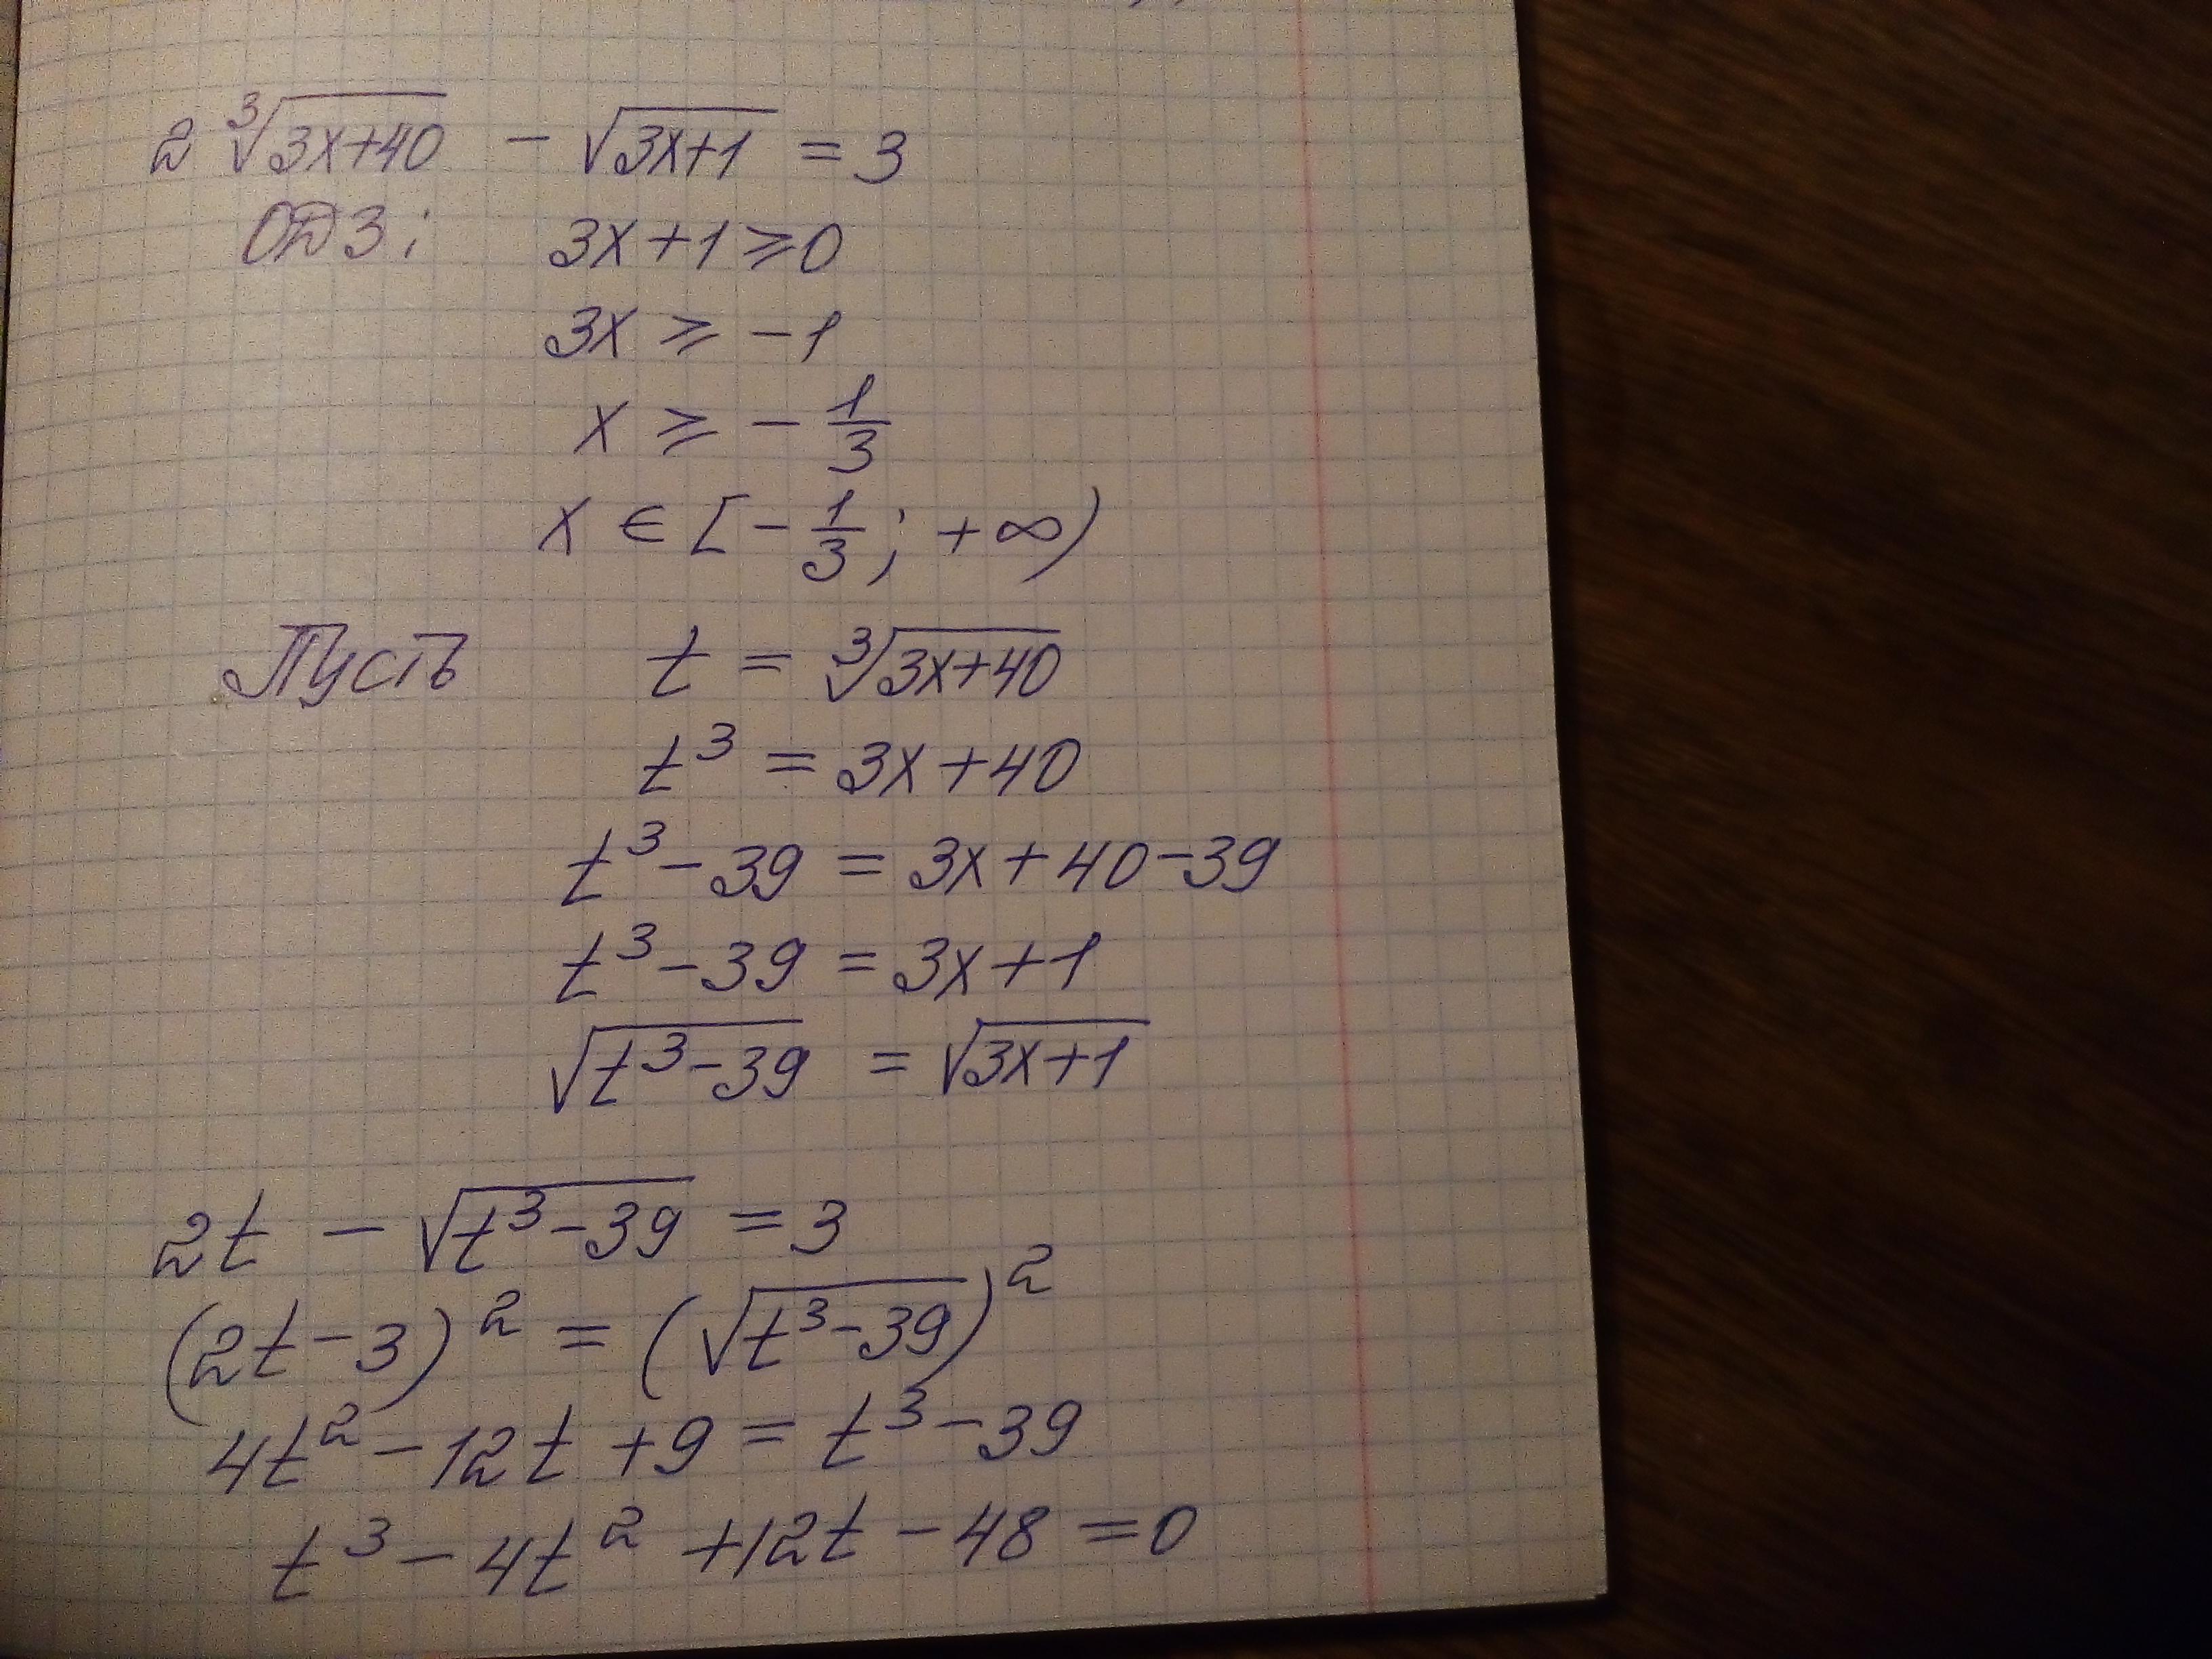 2 ∛(3x+40) - √(3x+1) = 3
ОДЗ: 3x+1 ≥ 0
3x ≥ -1
x ≥ -1/3
x ∈ [-1/3; +∞)
Пусть t = ∛(3x+40)
t³ = 3x+40
t³-39 = 3x+40-39
t³-39 = 3x+1
√(t³-39) = √(3x+1)
2t - √(t³-39) = 3
(2t-3)² = (√(t³-39))²
4t²-12t+9 = t³-39
t³-4t²+12t-48=0